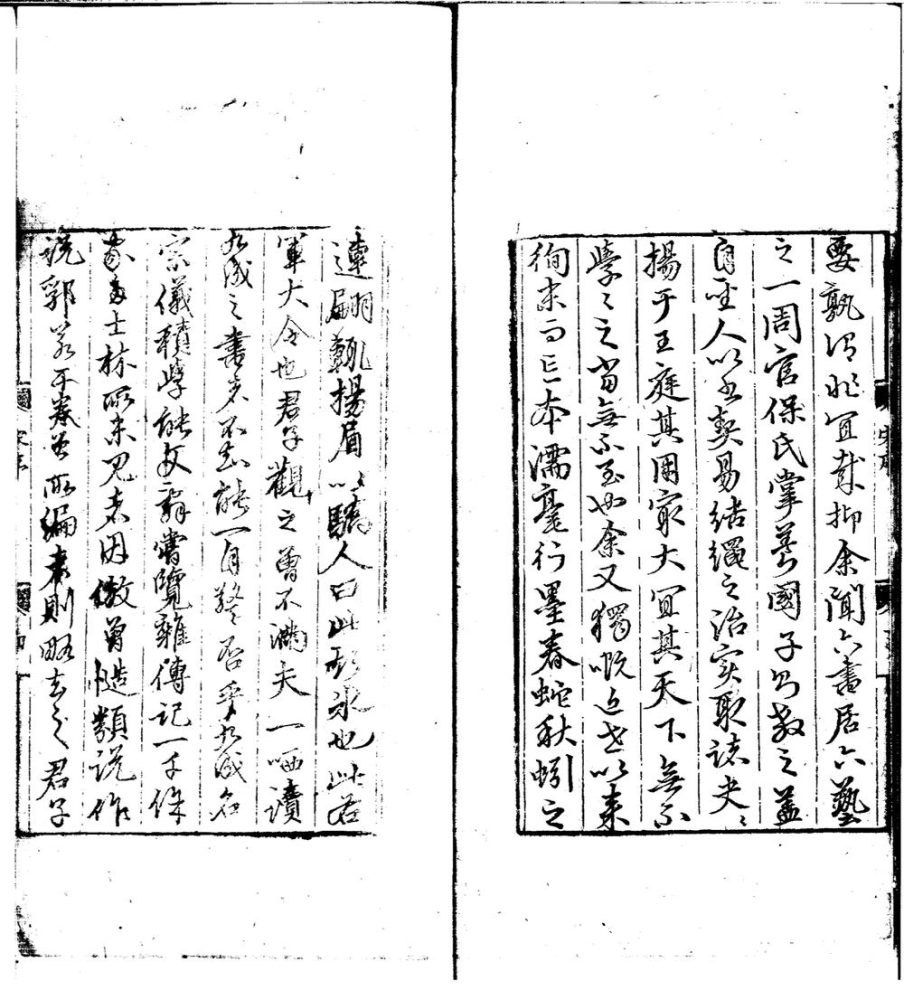 要孰謂非宜哉抑余聞六書居六藝
之一周官保氏掌養國子以教之蓋
自聖人以書契易結繩之治實取諸夬〻
揚于王庭其用最大宜其天下無不
學〻之當無不至也余又獨嘅近世以來
徇末而忘本濡毫行墨春蛇秋蚓之
宋序
連翩輒揚眉以驕人曰此斯冰也此右
軍大令也君子觀之曾不滿夫一哂讀
九成之書者不知能一自警否乎九成名
宗儀積學能文辭嘗覽雜傳記一千餘
家多士林所未見者因倣曾慥類說作
說郛若干卷所編者則略去之君子